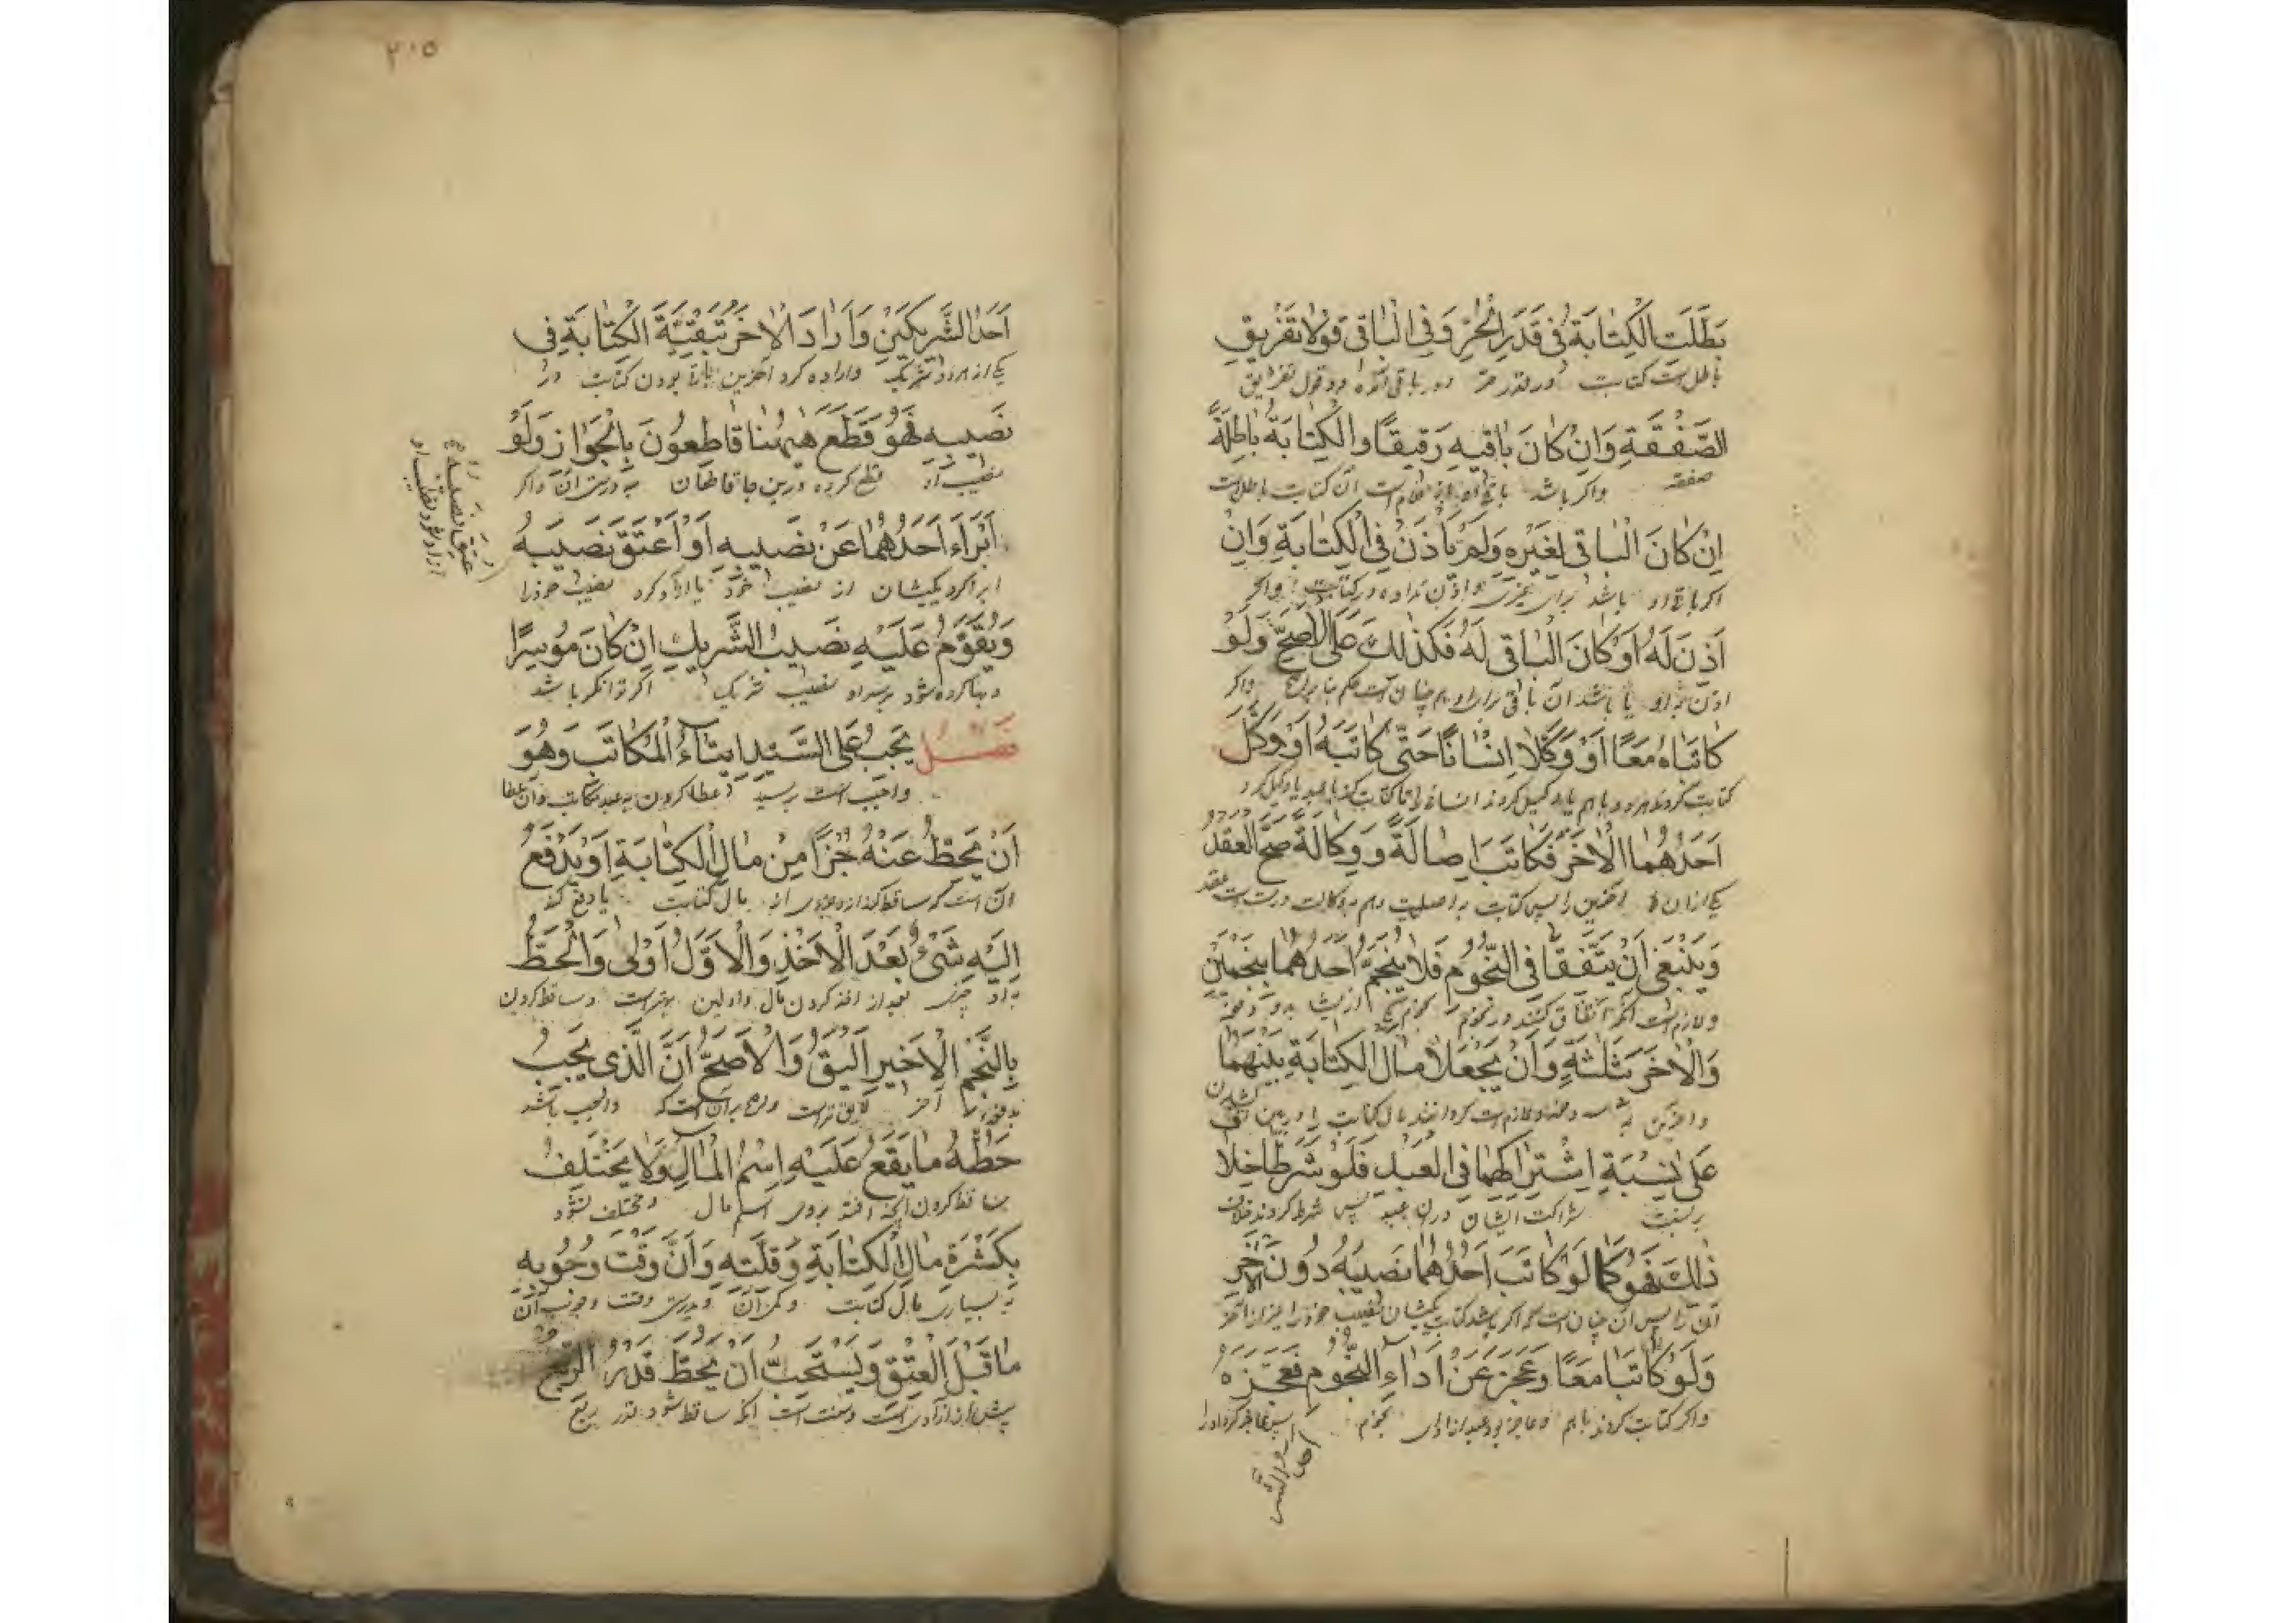 بَطَلَتِ الْكِتَابَةُ فِى قَدَرِ الْحُرِّ وَفِى الْبَاقِى قَوْلَا تَفْرِيقِ
باطل است کتابت در قدر حر و در باقی دو قول تفریق
الصَّفْقَةِ وَاِنْ كَانَ بَاقِيهِ رَقِيقًا وَالْكِتَابَةُ بَاطِلَةٌ
صفقه واکر باشد باقی غلام است آن کتابت باطل است
اِنْ كَانَ الْبَاقِى لِغَيْرِهِ وَلَمْ يَأْذَنْ فِى الْكِتَابَةِ وَاِنْ
اکر باقی او باشد برای غیری و اذن نداده در کتابت واکر
اَذِنَ لَهُ اَوْ كَانَ الْبَاقِى لَهُ فَكَذٰلِكَ عَلَى الْاَصَحِّ وَلَوْ
اذن یا باشد آن باقی واکر
كَاتَبَاهُ مَعًا اَوْ وَكَّلَا اِنْسَانًا حَتّٰى كَاتَبَهُ اَوْ وَكَّلَ
کتابت کردند هردو باهم یا وکیل کردند انسانی را تا کتابت کند با عبد یا وکیل کرد
اَحَدُهُمَا الْاٰخَرَ فَكَاتَبَ اِصَالَةً وَوِكَالَةً صَحَّ الْعَقْدُ
یکی از آن اخرین را پس کتابت به اصلیت وهم به وکالت درست است عقد
وَيَنْبَغِى اَنْ يَتَّفِقَا فِى النُّجُومِ فَلَا يُنَجِّمُ اَحَدُهُمَا بِنَجْمَيْنِ
ولازم است آنکه اتفاق کنند در نجوم
وَالْاٰخَرُ بِثَلٰثَةٍ وَاَنْ يَجْعَلَا مَالَ الْكِتَابَةِ بَيْنَهُمَا
واخرین به سه دفعه ولازم است کردانند مال کتابت را در بین
عَلٰى نِسْبَةِ اِشْتِرَاكِهِمَا فِى الْعَبْدِ فَلَوْ شَرَطَا خِلَافَ
بر نسبت شراکت ایشان در آن عبد پس شرط کردند خلاف
ذٰلِكَ فَهُوَ كَمَا لَوْ كَاتَبَ اَحَدُهُمَا نَصِيبَهُ دُونَ الْاٰخَرِ
آن را پس آن چنان است که اکر باشد کتابت یکیشان نصیب خود را
وَلَوْ كَاتَبَا مَعًا وَعَجَزَ عَنْ اَدَاءِ النُّجُومِ فَعَجَّزَهُ
واکر کتابت کردند باهم وعاجز بود عبد از ادای نجوم پس عاجز کرد اورا
۲۰۵
اَحَدُ الشَّرِيكَيْنِ وَاَرَادَ الْاٰخَرُ تَبْقِيَةَ الْكِتَابَةِ فِى
یکی از هردو شریک واراده کرد اخرین بودن کتابت در
نَصِيبِهِ فَهُوَ قَطَعَ هٰيهُنَا قَاطِعُونَ بِالْجَوَازِ وَلَوْ
نصیب او قطع کرده در این جا قاطعان به درستی آن واکر
اَبْرَاَءَ اَحَدُهُمَا عَنْ نَصِيبِهِ اَوْ اَعْتَقَ نَصِيبَهُ
ابرا کرد یکیشان از نصیب خود یا آزاد کرد نصیب خود را
عَتَقَ نَصِيبُهُ
آزاد شود نصیب او
وَيُقَوَّمُ عَلَيْهِ نَصِيبُ الشَّرِيكِ اِنْ كَانَ مُوسِرًا
وبها کرده شود بر او نصیب شریک اکر توانکر باشد
فَصْلٌ يَجِبُ عَلَى السَّيِّدِ اِيتَاءُ الْمُكَاتَبِ وَهُوَ
واجب است بر سید عطا کردن به عبد مکاتب وآن عطا
اَنْ يَحِطَّ عَنْهُ جُزْاً مِنْ مَالِ الْكِتَابَةِ اَوْ يَدْفَعَ
آن است که ساقط کند از مال کتابت یا دفع کند
اِلَيْهِ شَىْءٌ بَعْدَ الْاَخْذِ وَالْاَوَّلُ اَوْلٰى وَالْحَطُّ
به او چیزی بعد از اخذ کردن مال واولین بهتر است وساقط کردن
بِالنَّجْمِ الْاَخِيرِ اَلْيَقُ وَالْاَصَحُّ اَنَّ الَّذِى يَجِبُ
آخر لایق تر است واصح بر آن است که واجب باشد
حَطُّهُ مَا يَقَعُ عَلَيْهِ اِسْمُ الْمَالِ وَلَا يَخْتَلِفُ
ساقط کردن آنچه افتد بروی اسم مال ومختلف نشود
بِكَثْرَةِ مَالِ الْكِتَابَةِ وَقِلَّتِهِ وَاَنَّ وَقْتَ وُجُوبِهِ
به بسیاری مال کتابت وکمی آن وبدرستی وقت وجوب آن
مَا قَبْلَ الْعِتْقِ وَيَسْتَحِبُّ اَنْ يَحِطَّ قَدْرَ الرُّبْعِ
پیش از آزادی است وسنت است آنکه ساقط شود قدر ربع